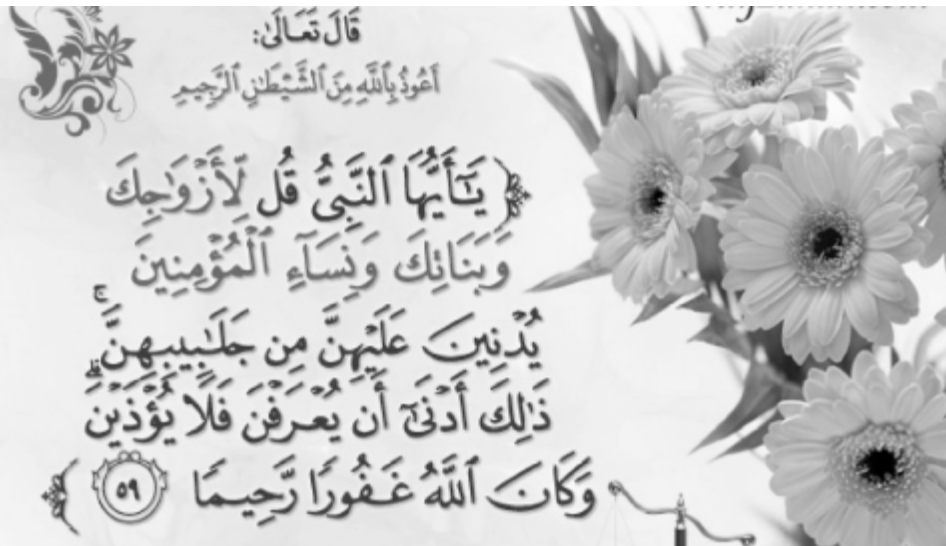 قَالَ تَعَالَىٰ:
أَعُوذُ بِٱللَّهِ مِنَ ٱلشَّيْطَٰنِ ٱلرَّجِيمِ
﴿ يَٰٓأَيُّهَا ٱلنَّبِىُّ قُل لِّأَزْوَٰجِكَ
وَبَنَاتِكَ وَنِسَآءِ ٱلْمُؤْمِنِينَ
يُدْنِينَ عَلَيْهِنَّ مِن جَلَٰبِيبِهِنَّ ۚ
ذَٰلِكَ أَدْنَىٰٓ أَن يُعْرَفْنَ فَلَا يُؤْذَيْنَ ۗ
وَكَانَ ٱللَّهُ غَفُورًا رَّحِيمًا ٥٩ ﴾